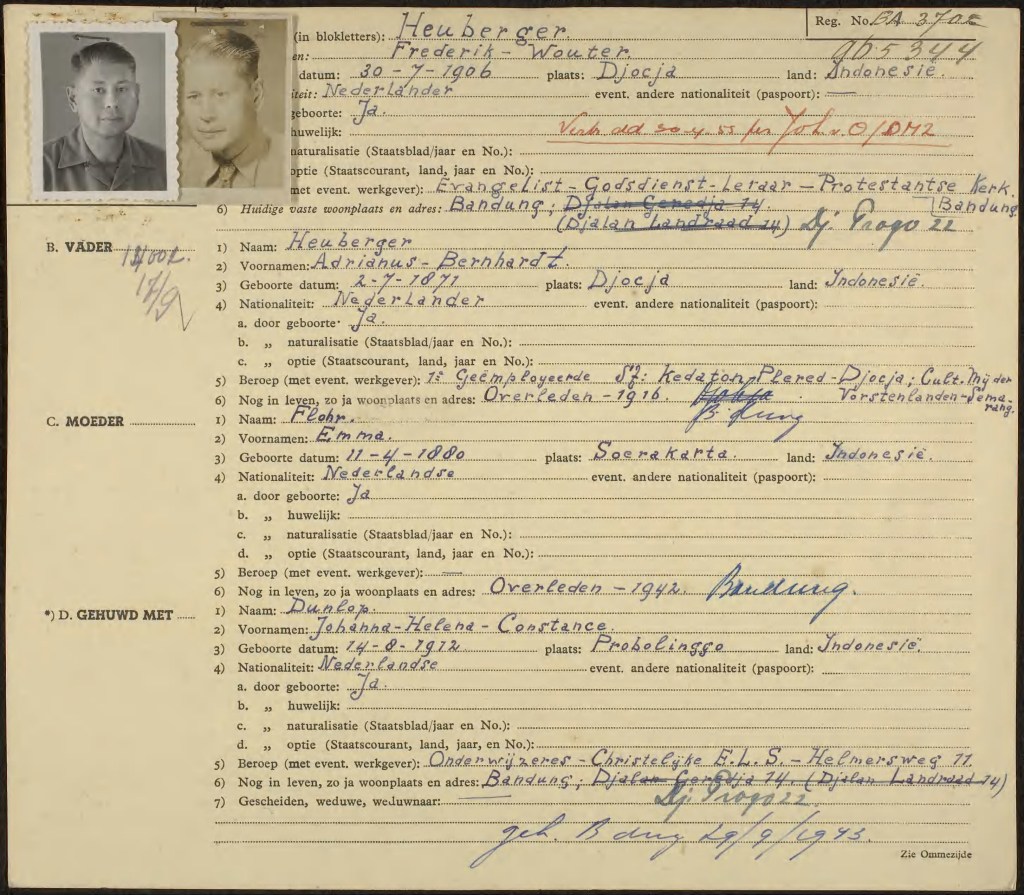 (in blokletters): Heuberger. Reg. No. EA 3702
en: Frederik - Wouter. 965344
datum: 30 - 7 - 1906 plaats: Djocja land: Indonesië.
iteit: Nederlander event. andere nationaliteit (paspoort): —
geboorte: Ja.
huwelijk: Vertr. dd 20-4-55 per Joh. v. O/DM2
naturalisatie (Staatsblad/jaar en No.):
optie (Staatscourant, land, jaar en No.):
met event. werkgever): Evangelist - Godsdienst - Leraar - Protestantse Kerk. Bandung
6) Huidige vaste woonplaats en adres: Bandung; Djalan Geredja 14.
(Djalan Landraad 14) Dj. Progo 22
B. VADER
1) Naam: Heuberger
17/9
2) Voornamen: Adrianus - Bernhardt.
3) Geboorte datum: 2-7-1871 plaats: Djocja land: Indonesië.
4) Nationaliteit: Nederlander event. andere nationaliteit (paspoort):
a. door geboorte: Ja.
b. „ naturalisatie (Staatsblad/jaar en No.):
c. „ optie (Staatscourant, land, jaar en No.):
5) Beroep (met event. werkgever): 1e Geëmployeerde Sf: Kedaton-Plered-Djocja; Cult. Mij der Vorstenlanden-Semarang.
6) Nog in leven, zo ja woonplaats en adres: Overleden - 1916.
C. MOEDER
1) Naam: Flohr.
2) Voornamen: Emma.
3) Geboorte datum: 11-4-1880 plaats: Soerakarta. land: Indonesië.
4) Nationaliteit: Nederlandse event. andere nationaliteit (paspoort):
a. door geboorte: Ja
b. „ huwelijk:
c. „ naturalisatie (Staatsblad/jaar en No.):
d. „ optie (Staatscourant, land, jaar en No.):
5) Beroep (met event. werkgever): —
6) Nog in leven, zo ja woonplaats en adres: Overleden - 1942. Bandung.
*) D. GEHUWD MET
1) Naam: Dunlop.
2) Voornamen: Johanna - Helena - Constance.
3) Geboorte datum: 14-8-1912 plaats: Probolinggo land: Indonesië.
4) Nationaliteit: Nederlandse event. andere nationaliteit (paspoort):
a. door geboorte: Ja.
b. „ huwelijk:
c. „ naturalisatie (Staatsblad/jaar en No.):
d. „ optie (Staatscourant, land, jaar, en No.):
5) Beroep (met event. werkgever): Onderwijzeres - Christelijke E.L.S - Helmersweg 11.
6) Nog in leven, zo ja woonplaats en adres: Bandung; Djalan Geredja 14. (Djalan Landraad 14)
7) Gescheiden, weduwe, weduwnaar: — Dj. Progo 22.
geh. Bdung 29/9/1943.
Zie Ommezijde